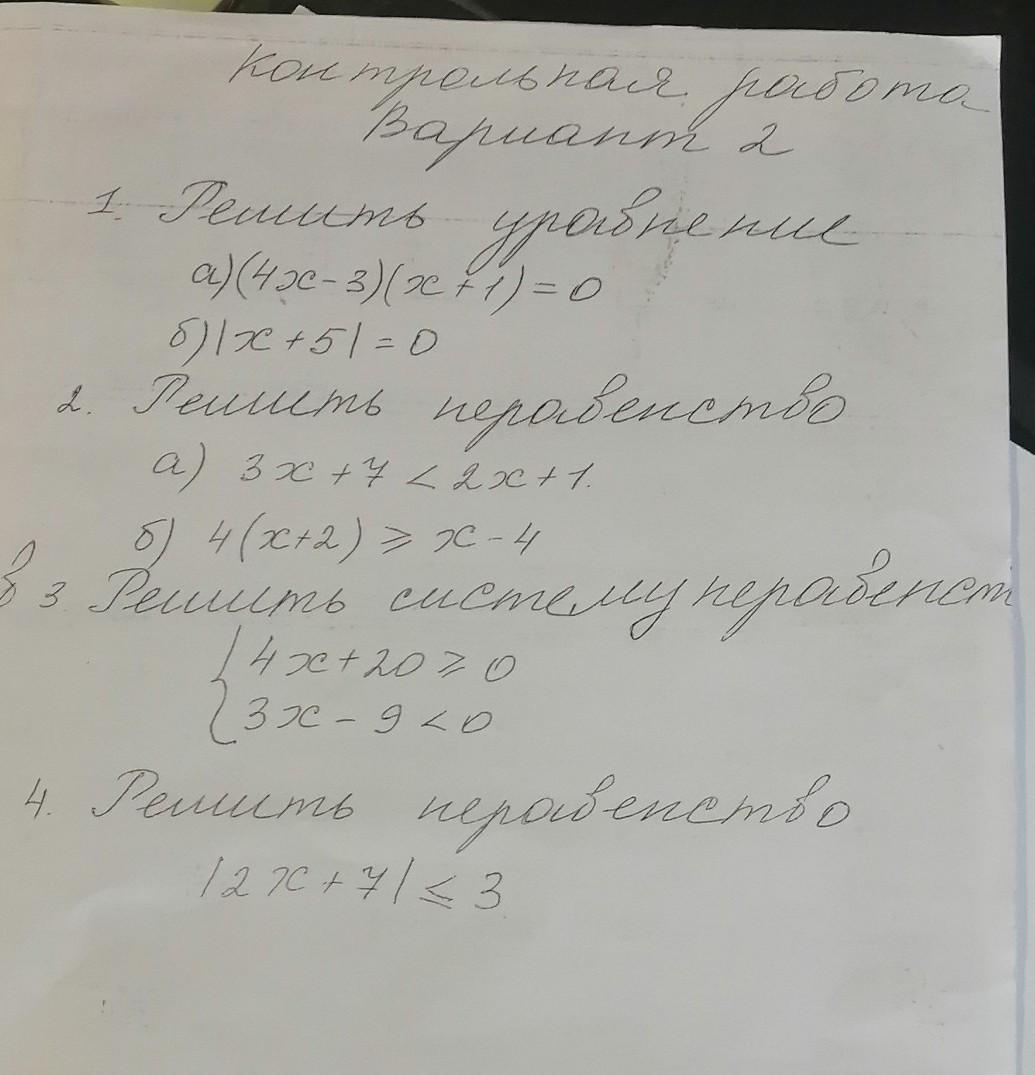 Контрольная работа
Вариант 2
1. Решить уравнение
а)(4x-3)(x+1)=0
б)|x+5|=0
2. Решить неравенство
а) 3x+7<2x+1.
б) 4(x+2)⩾x-4
в 3. Решить систему неравенст
{4x+20⩾0
3x-9<0
4. Решить неравенство
|2x+7|⩽3